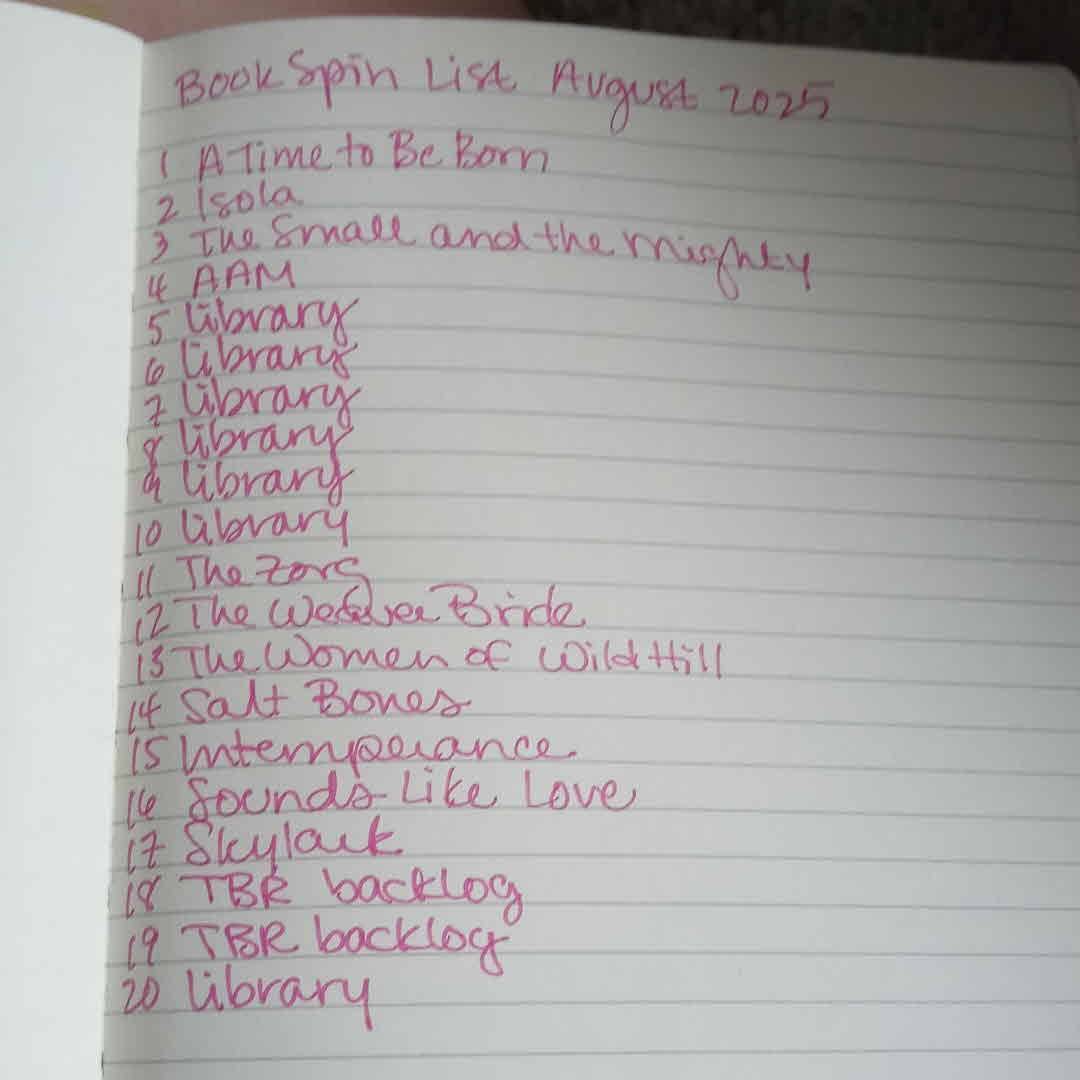 Book Spin List August 2025
1 A Time to Be Born
2 Isola
3 The Small and the Mighty
4 AAM
5 Library
6 Library
7 Library
8 Library
9 Library
10 Library
11 The Zorg
12 The Bride
13 The Women of Wild Hill
14 Salt Bones
15 Intemperance
16 Sounds Like Love
17 Skylark
18 TBR backlog
19 TBR backlog
20 Library